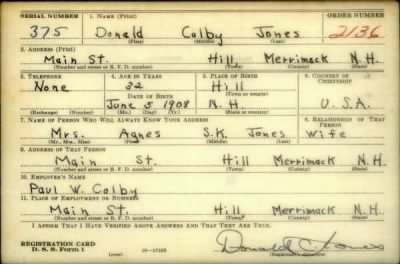 SERIAL NUMBER 1. NAME (Print) ORDER NUMBER
375 Donald Colby Jones 2136
(First) (Middle) (Last)
2. ADDRESS (Print)
Main St. Hill Merrimack N.H.
(Number and street or R. F. D. number) (Town) (County) (State)
3. TELEPHONE 4. AGE IN YEARS 5. PLACE OF BIRTH 6. COUNTRY OF CITIZENSHIP
None 32 Hill
DATE OF BIRTH (Town or county)
June 5 1908 N.H. U.S.A.
(Exchange) (Number) (Mo.) (Day) (Yr.) (State or country)
7. NAME OF PERSON WHO WILL ALWAYS KNOW YOUR ADDRESS 8. RELATIONSHIP OF THAT PERSON
Mrs. Agnes S.K. Jones Wife
(Mr., Mrs., Miss) (First) (Middle) (Last)
9. ADDRESS OF THAT PERSON
Main St. Hill Merrimack N.H.
(Number and street or R. F. D. number) (Town) (County) (State)
10. EMPLOYER'S NAME
Paul W. Colby
11. PLACE OF EMPLOYMENT OR BUSINESS
Main St. Hill Merrimack N.H.
(Number and street or R. F. D. number) (Town) (County) (State)
I AFFIRM THAT I HAVE VERIFIED ABOVE ANSWERS AND THAT THEY ARE TRUE.
REGISTRATION CARD
D. S. S. Form 1 Donald C. Jones
(over) (Registrant's signature)